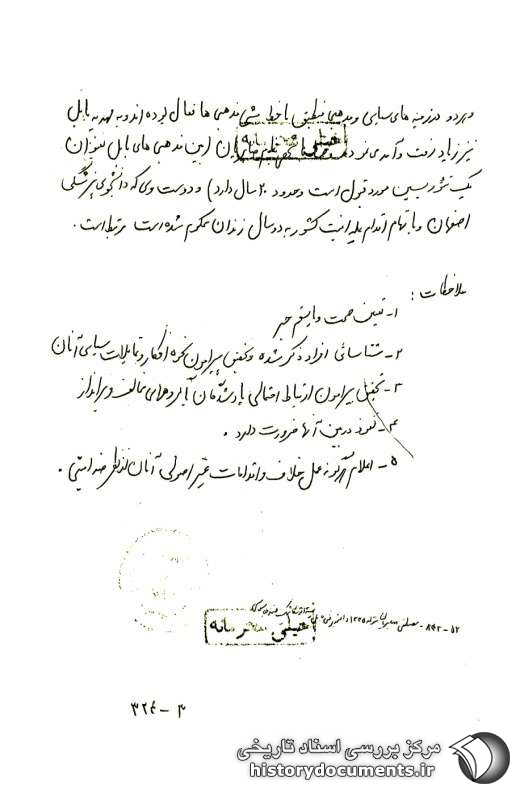 و هر دو در زمینه های سیاسی و مذهبی منطبق با خط مشی مذهبی ها فعال بوده اند و به
نیز زیاد رفت و آمدی
خیلی محرمانه
بین مذهبی های بابل بعنوان
یک تئوریسین مورد قبول است و حدود ۲۰ سال دارد) و دوست وی که دانشجوی پزشکی
اصفهان و با اتهام اقدام علیه امنیت کشور به دو سال زندان محکوم شده است مرتبط است.
ملاحظات:
۱- تعیین صحت و یا سقم خبر
۲- شناسائی افراد ذکر شده و تحقیق پیرامون نحوه افکار و تمایلات سیاسی آنان
۳- تحقیق پیرامون ارتباط احتمالی یادشدگان با گروههای مخالف و برانداز
۴- نفوذ در بین آنها ضرورت دارد.
۵- اعلام هرگونه عمل خلاف و اقدامات غیر اصولی آنان از نظر ضد امنیتی.
خیلی محرمانه
۳ - ۳۲٤
مرکز بررسی اسناد تاریخی
historydocuments.ir